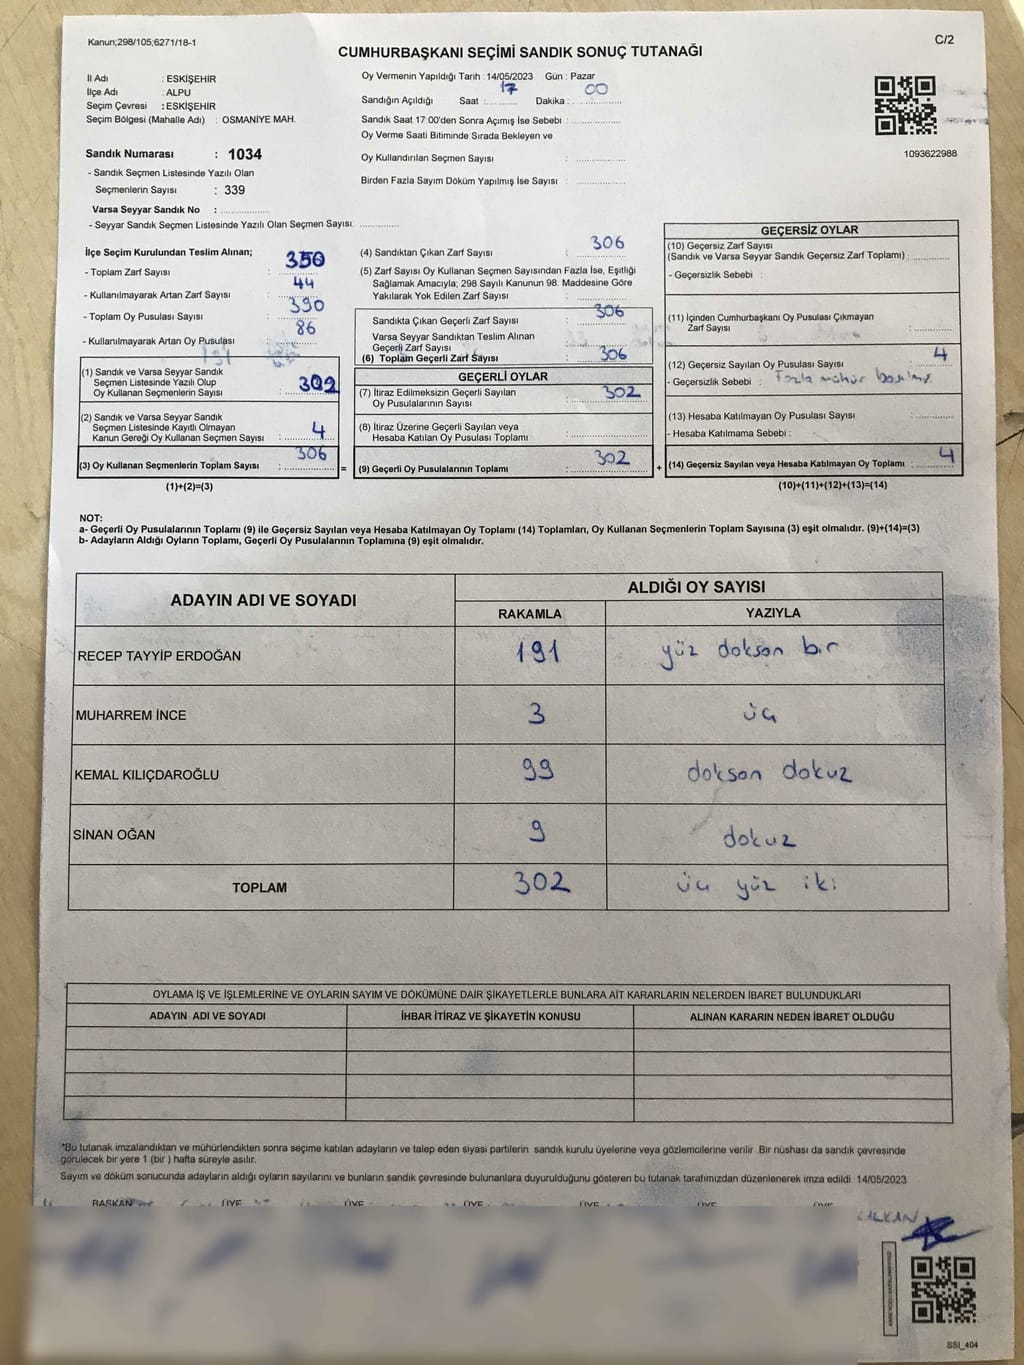 Kanun;298/105;6271/18-1
C/2
CUMHURBAŞKANI SEÇİMİ SANDIK SONUÇ TUTANAĞI
İl Adı : ESKİŞEHİR
İlçe Adı : ALPU
Seçim Çevresi : ESKİŞEHİR
Seçim Bölgesi (Mahalle Adı) : OSMANİYE MAH.
Sandık Numarası : 1034
- Sandık Seçmen Listesinde Yazılı Olan
Seçmenlerin Sayısı : 339
Varsa Seyyar Sandık No :
- Seyyar Sandık Seçmen Listesinde Yazılı Olan Seçmen Sayısı:
Oy Vermenin Yapıldığı Tarih : 14/05/2023 Gün : Pazar
Sandığın Açıldığı Saat : 17 Dakika : 00
Sandık Saat 17:00'den Sonra Açımış İse Sebebi :
Oy Verme Saati Bitiminde Sırada Bekleyen ve
Oy Kullandırılan Seçmen Sayısı :
Birden Fazla Sayım Döküm Yapılmış İse Sayısı :
1093622988
İlçe Seçim Kurulundan Teslim Alınan;
- Toplam Zarf Sayısı : 350
- Kullanılmayarak Artan Zarf Sayısı : 44
- Toplam Oy Pusulası Sayısı : 390
- Kullanılmayarak Artan Oy Pusulası : 86
(1) Sandık ve Varsa Seyyar Sandık
Seçmen Listesinde Yazılı Olup
Oy Kullanan Seçmenlerin Sayısı : 302
(2) Sandık ve Varsa Seyyar Sandık
Seçmen Listesinde Kayıtlı Olmayan
Kanun Gereği Oy Kullanan Seçmen Sayısı : 4
(3) Oy Kullanan Seçmenlerin Toplam Sayısı : 306
=
(1)+(2)=(3)
(4) Sandıktan Çıkan Zarf Sayısı : 306
(5) Zarf Sayısı Oy Kullanan Seçmen Sayısından Fazla İse, Eşitliği
Sağlamak Amacıyla; 298 Sayılı Kanunun 98. Maddesine Göre
Yakılarak Yok Edilen Zarf Sayısı :
Sandıkta Çıkan Geçerli Zarf Sayısı : 306
Varsa Seyyar Sandıktan Teslim Alınan
Geçerli Zarf Sayısı :
(6) Toplam Geçerli Zarf Sayısı : 306
GEÇERLİ OYLAR
(7) İtiraz Edilmeksizin Geçerli Sayılan
Oy Pusulalarının Sayısı : 302
(8) İtiraz Üzerine Geçerli Sayılan veya
Hesaba Katılan Oy Pusulası Toplamı :
(9) Geçerli Oy Pusulalarının Toplamı : 302
+
GEÇERSİZ OYLAR
(10) Geçersiz Zarf Sayısı
(Sandık ve Varsa Seyyar Sandık Geçersiz Zarf Toplamı) :
- Geçersizlik Sebebi :
(11) İçinden Cumhurbaşkanı Oy Pusulası Çıkmayan
Zarf Sayısı :
(12) Geçersiz Sayılan Oy Pusulası Sayısı : 4
- Geçersizlik Sebebi : Fazla mühür
(13) Hesaba Katılmayan Oy Pusulası Sayısı :
- Hesaba Katılmama Sebebi :
(14) Geçersiz Sayılan veya Hesaba Katılmayan Oy Toplamı : 4
(10)+(11)+(12)+(13)=(14)
NOT:
a- Geçerli Oy Pusulalarının Toplamı (9) ile Geçersiz Sayılan veya Hesaba Katılmayan Oy Toplamı (14) Toplamları, Oy Kullanan Seçmenlerin Toplam Sayısına (3) eşit olmalıdır. (9)+(14)=(3)
b- Adayların Aldığı Oyların Toplamı, Geçerli Oy Pusulalarının Toplamına (9) eşit olmalıdır.
ADAYIN ADI VE SOYADI
ALDIĞI OY SAYISI
RAKAMLA YAZIYLA
RECEP TAYYİP ERDOĞAN 191 yüz doksan bir
MUHARREM İNCE 3 üç
KEMAL KILIÇDAROĞLU 99 doksan dokuz
SİNAN OĞAN 9 dokuz
TOPLAM 302 üç yüz iki
OYLAMA İŞ VE İŞLEMLERİNE VE OYLARIN SAYIM VE DÖKÜMÜNE DAİR ŞİKAYETLERLE BUNLARA AİT KARARLARIN NELERDEN İBARET BULUNDUKLARI
ADAYIN ADI VE SOYADI İHBAR İTİRAZ VE ŞİKAYETİN KONUSU ALINAN KARARIN NEDEN İBARET OLDUĞU
*Bu tutanak imzalandıktan ve mühürlendikten sonra seçime katılan adayların ve talep eden siyasi partilerin sandık kurulu üyelerine veya gözlemcilerine verilir. Bir nüshası da sandık çevresinde
görülecek bir yere 1 (bir) hafta süreyle asılır.
Sayım ve döküm sonucunda adayların aldığı oyların sayılarını ve bunların sandık çevresinde bulunanlara duyurulduğunu gösteren bu tutanak tarafımızdan düzenlenerek imza edildi. 14/05/2023
BAŞKAN ÜYE ÜYE ÜYE ÜYE ÜYE ÜYE
SSİ_404